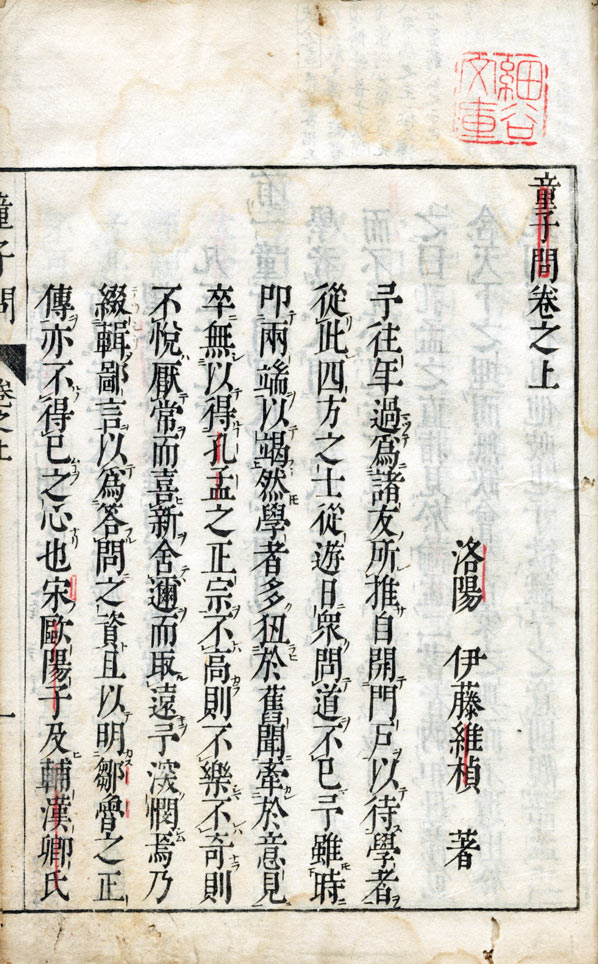 細谷
文庫
童子問卷之上
洛陽 伊藤維楨 著
予往年過爲諸友所推自開門戶以待學者
從此四方之士從遊日衆問道不已予雖時
叩兩端以竭然學者多狃於舊聞牽於意見
卒無以得孔孟之正宗不高則不樂不奇則
不悅厭常而喜新舍邇而取遠予深憫焉乃
綴輯鄙言以爲答問之資且以明鄒魯之正
傳亦不得已之心也宋歐陽子及輔漢卿氏
童子問 卷之上 一